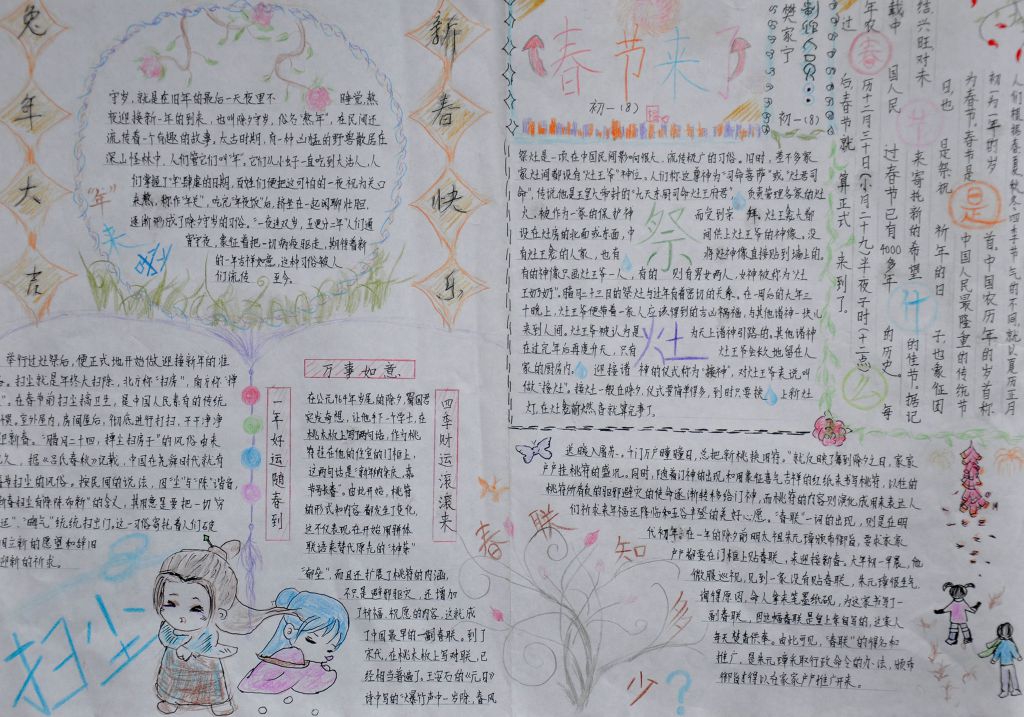 兔年大吉
新春快乐
守岁,就是在旧年的最后一天夜里不睡觉,熬
夜迎接新一年的到来,也叫除夕守岁,俗名“熬年”,在民间还
流传着一个有趣的故事,太古时期,有一种凶猛的野兽散居在
深山怪林中,人们管它们叫“年”。
人们掌握了“年”肆虐的日期,百姓们便把这可怕的一夜视为关口
来熬,称作“年关”,吃完“年夜饭”后,挤坐在一起闲聊壮胆,
逐渐形成了除夕守岁的习俗。“一夜连双岁,五更分二年”人们通
宵守夜,象征着把一切病疫驱走,期待着新
的一年吉祥如意,这种习俗被人
们流传至今。
“年”
来
举行过灶祭后,便正式地开始做迎接新年的准
。扫尘就是年终大扫除,北方称“扫房”,南方称“掸
。在春节前扫尘搞卫生,是中国人民素有的传统
惯。室外屋内,房前屋后,彻底进行打扫,干干净净
迎新春。“腊月二十四,掸尘扫房子”的风俗由来
久,据《吕氏春秋》记载,中国在尧舜时代就有
春扫尘的风俗。按民间的说法,因“尘”与“陈”谐音,
新春扫尘有“除陈布新”的含义,其用意是要把一切“穷
运”、“晦气”统统扫出门,这一习俗寄托着人们破
旧立新的愿望和辞旧
迎新的祈求。
扫尘
一年好运随春到
万事如意
四季财运滚滚来
在公元964年岁尾的除夕,蜀国君
突发奇想,让他手下一个学士,在
桃木板上写了两句话,作为桃
符挂在他的住室的门框上,
这两句话是“新年纳余庆,嘉
节号长春”。由此开始,桃符
的形式和内容都发生了变化,
这不仅表现在开始用骈体
联语来替代原先的“神荼”
“郁垒”,而且还扩展了桃符的内涵,
不只是避邪驱灾,还增加
了祈福、祝愿的内容,这就成
了中国最早的一副春联。到了
宋代,在桃木板上写对联,已
经相当普遍了,王安石的《元日》
诗中写的“爆竹声中一岁除,春风
春节来了
初一(8)
樊家宁
初一(8)
祭灶是一项在中国民间影响很大、流传极广的习俗。旧时,差不多家
家灶间都设有“灶王爷”神位。人们称这尊神为“司命菩萨”或“灶君司
命”,传说他是玉皇大帝封的“九天东厨司命灶王府君”,负责管理各家的灶
火,被作为一家的保护神而受到崇拜。灶王龛大都
设在灶房的北面或东面,中间供上灶王爷的神像。没
有灶王龛的人家,也有将神像直接贴到墙上的。
有的神像只画灶王爷一人,有的则有男女两人,女神被称为“灶
王奶奶”。腊月二十三日的祭灶与过年有着密切的关系。在一周后的大年三
十晚上,灶王爷便带着一家人应该得到的吉凶祸福,与其他诸神一块儿
来到人间。灶王爷被认为是为天上诸神引路的,其他诸神
在过完年后再度升天,只有灶王爷会长久地留在人
家的厨房内。迎接诸神的仪式称为“接神”,对灶王爷来说叫
做“接灶”。接灶一般在除夕,仪式要简单得多,到时只要换上新灶
灯,在灶龛前燃香就算完事了。
祭灶
春节是什么
人们根据春夏秋冬四季节气的不同,就以夏历正月
初一为一年的岁首。中国农历年的岁首称
为春节。春节是中国人民最隆重的传统节
日,也是祝祈年的日子,也象征团
结兴旺对未来寄托新的希望的佳节。据记
载中国人民过春节已有4000多年的历史。每
年农历十二月三十日(小月二十九)半夜子时(十二点)
过后春节就算正式来到了。
千门万户曈曈日,总把新桃换旧符。”就反映了每到除夕之日,家家
户户挂桃符的盛况。同时,随着门神的出现和用象征喜气吉祥的红纸来书写桃符,以往的
桃符所肩负的驱邪避灾的使命逐渐转移给门神,而桃符的内容则演化成用来表达人
们祈求来年福运降临和五谷丰登的美好心愿。“春联”一词的出现,则是在明
代初年。在一年的除夕前明太祖朱元璋颁布御旨,要求家家
户户都要在门框上贴春联,来迎接新春。大年初一早晨,他
微服巡视,见到一家没有贴春联,朱元璋很生气,
询得原因,命人拿来笔墨纸砚,为这家书写了一
副春联。因这幅春联是皇上亲自写的,这家人
每天焚香供奉。由此可见,“春联”的得名和
推广,是朱元璋采取行政命令的办法,颁布
御旨才得以在家家户户推广开来。
春联知多少?